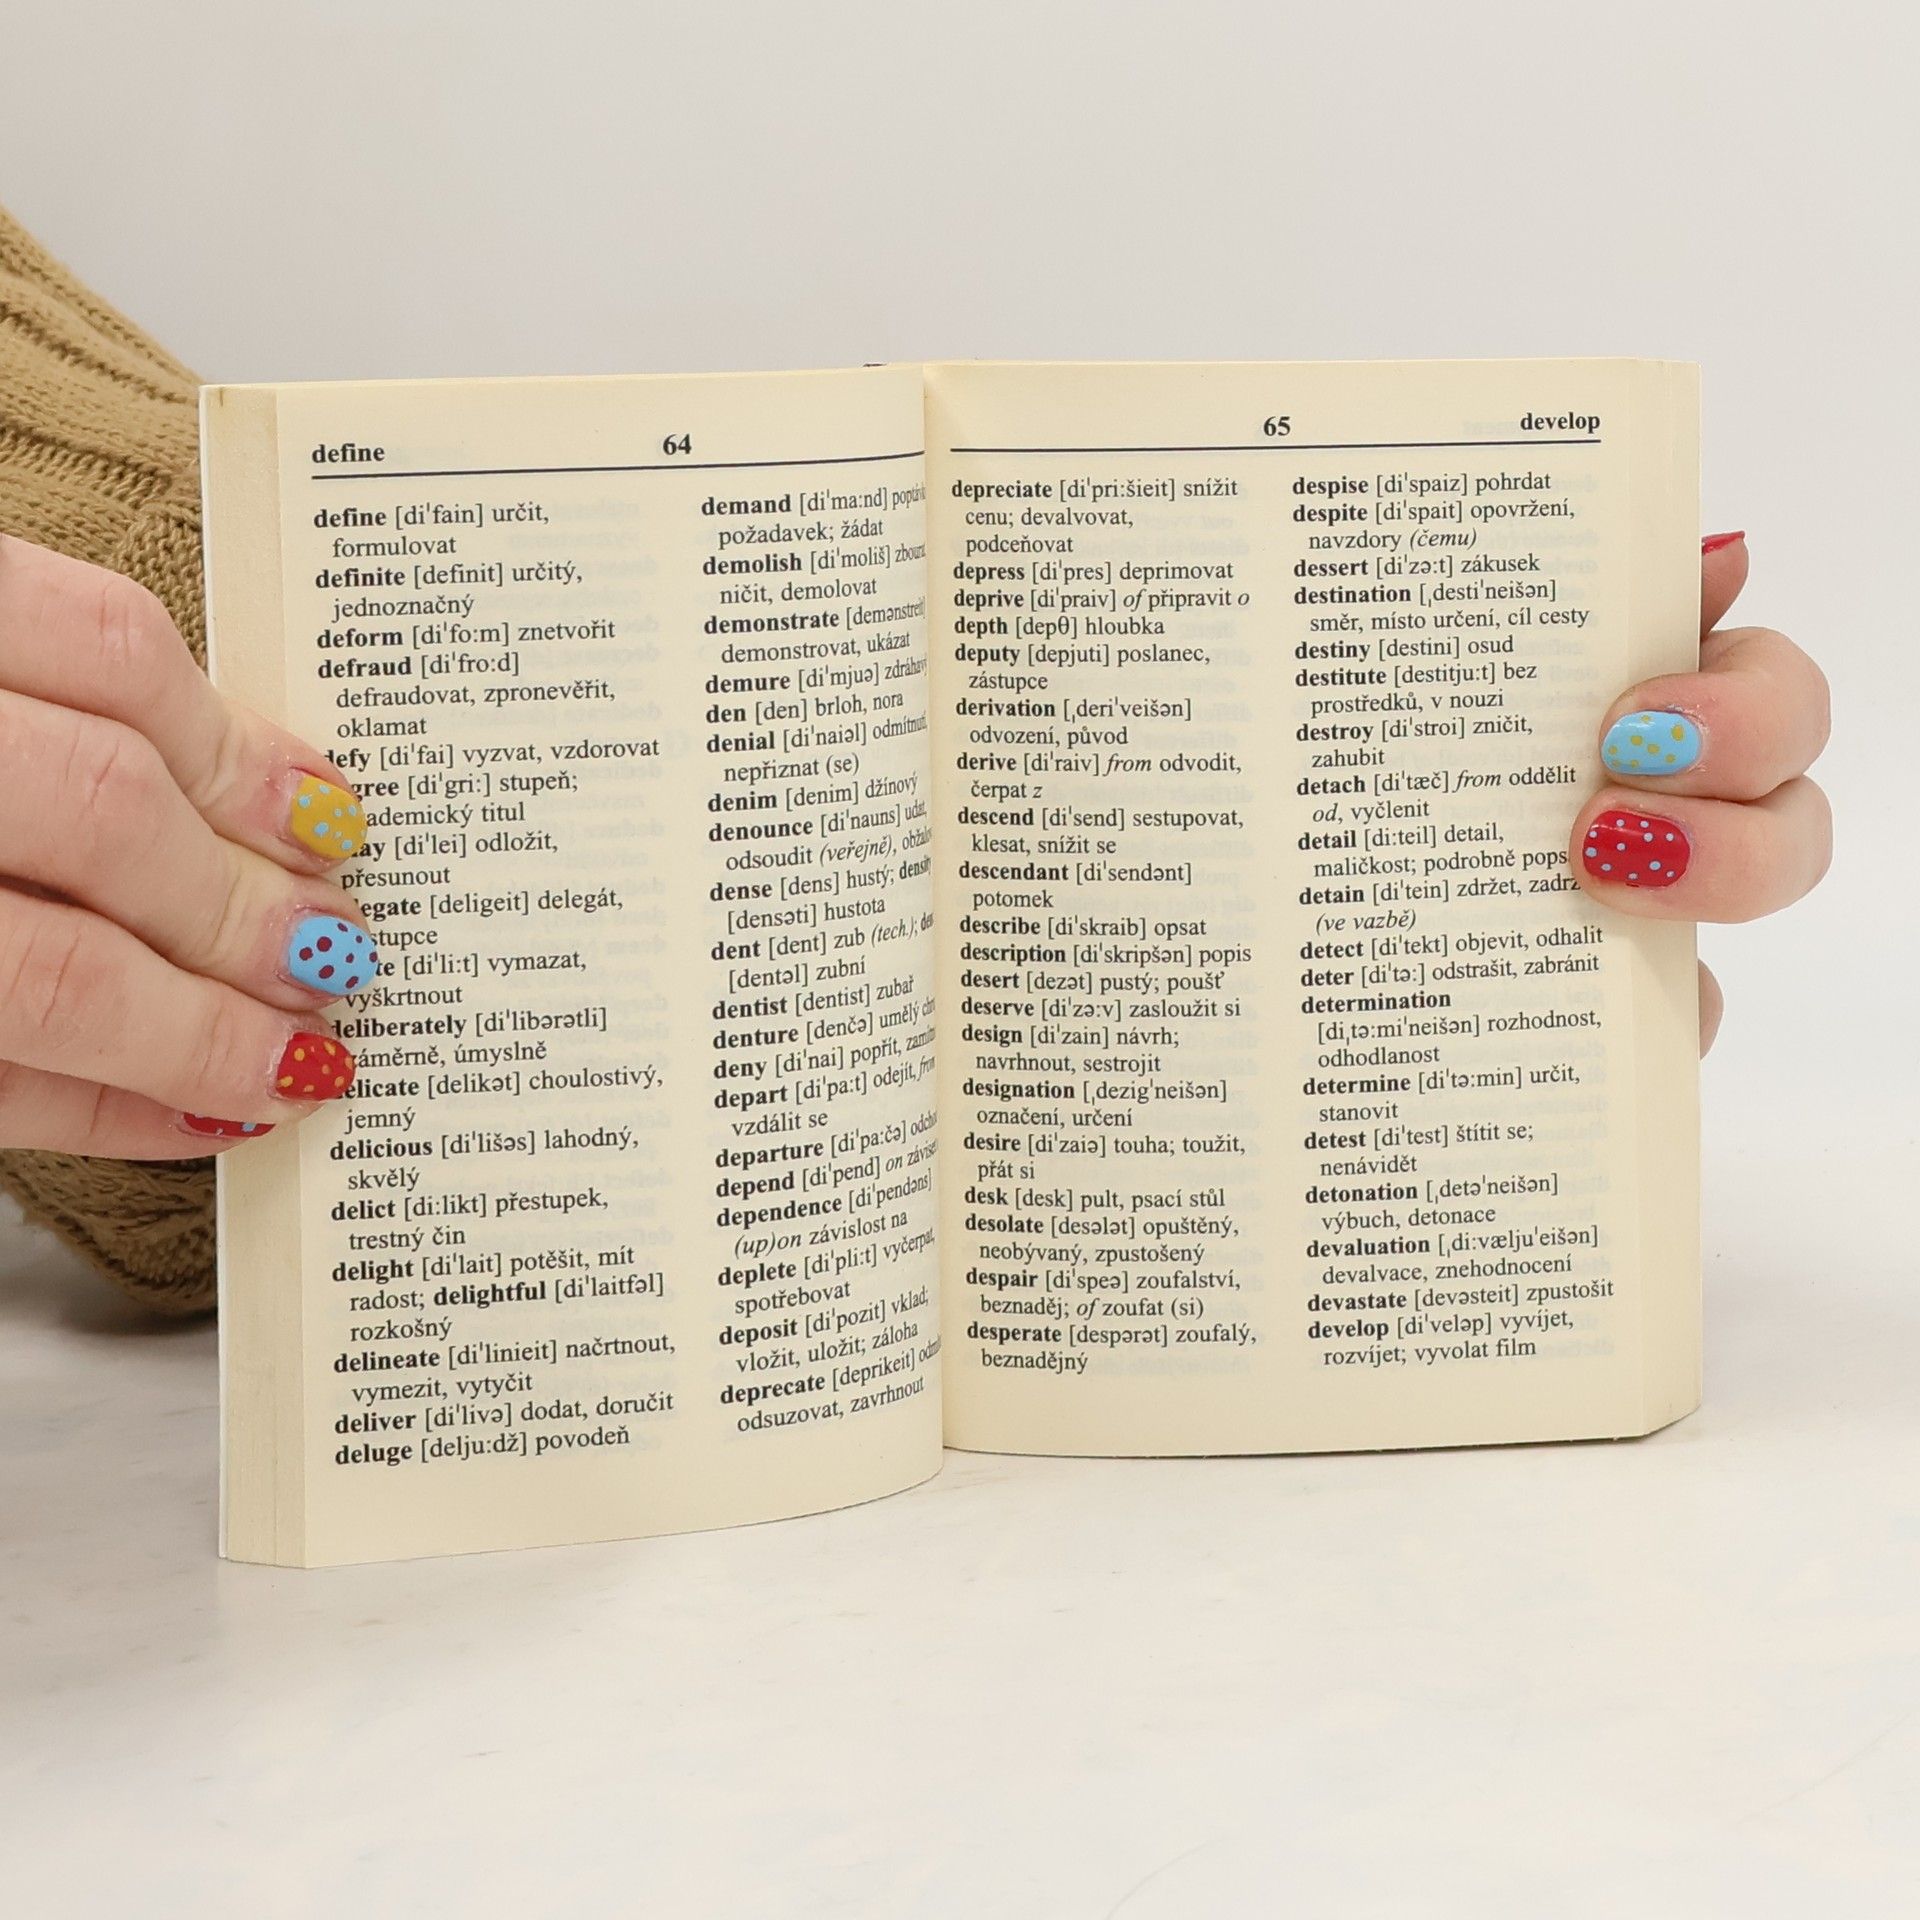 define
64
define [di'fain] určit,
formulovat
definite [definit] určitý,
jednoznačný
deform [di'fo:m] znetvořit
defraud [di'fro:d]
defraudovat, zpronevěřit,
oklamat
[di'fai] vyzvat, vzdorovat
[di'gri:] stupeň;
titul
[di'lei] odložit,
přesunout
[deligeit] delegát,
[di'li:t] vymazat,
vyškrtnout
deliberately [di'libərətli]
záměrně, úmyslně
delicate [delikət] choulostivý,
jemný
delicious [di'lišəs] lahodný,
skvělý
delict [di:likt] přestupek,
trestný čin
delight [di'lait] potěšit, mít
radost; delightful [di'laitfəl]
rozkošný
delineate [di'linieit] načrtnout,
vymezit, vytyčit
deliver [di'livə] dodat, doručit
deluge [delju:dž] povodeň
demand [di'ma:nd]
požadavek; žádat
demolish [di'moliš]
ničit, demolovat
demonstrate [demənstreit]
demonstrovat, ukázat
demure [di'mjuə]
den [den] brloh, nora
denial [di'naiəl]
nepřiznat (se)
denim [denim] džínový
denounce [di'nauns]
odsoudit (veřejně),
dense [dens] hustý;
[densəti] hustota
dent [dent] zub (tech.);
[dentəl] zubní
dentist [dentist] zubař
denture [denčə] umělý
deny [di'nai] popřít,
depart [di'pa:t] odejít, from
vzdálit se
departure [di'pa:čə]
depend [di'pend] on
dependence [di'pendəns]
(up)on závislost na
deplete [di'pli:t]
spotřebovat
deposit [di'pozit] vklad;
vložit, uložit; záloha
deprecate [deprikeit]
odsuzovat, zavrhnout
65
develop
depreciate [di'pri:šieit] snížit
cenu; devalvovat,
podceňovat
depress [di'pres] deprimovat
deprive [di'praiv] of připravit o
depth [depθ] hloubka
deputy [depjuti] poslanec,
zástupce
derivation [ˌderi'veišən]
odvození, původ
derive [di'raiv] from odvodit,
čerpat z
descend [di'send] sestupovat,
klesat, snížit se
descendant [di'sendənt]
potomek
describe [di'skraib] opsat
description [di'skripšən] popis
desert [dezət] pustý; poušť
deserve [di'zə:v] zasloužit si
design [di'zain] návrh;
navrhnout, sestrojit
designation [ˌdezig'neišən]
označení, určení
desire [di'zaiə] touha; toužit,
přát si
desk [desk] pult, psací stůl
desolate [desələt] opuštěný,
neobývaný, zpustošený
despair [di'speə] zoufalství,
beznaděj; of zoufat (si)
desperate [despərət] zoufalý,
beznadějný
despise [di'spaiz] pohrdat
despite [di'spait] opovržení,
navzdory (čemu)
dessert [di'zə:t] zákusek
destination [ˌdesti'neišən]
směr, místo určení, cíl cesty
destiny [destini] osud
destitute [destitju:t] bez
prostředků, v nouzi
destroy [di'stroi] zničit,
zahubit
detach [di'tæč] from oddělit
od, vyčlenit
detail [di:teil] detail,
maličkost; podrobně
detain [di'tein] zdržet,
(ve vazbě)
detect [di'tekt] objevit, odhalit
deter [di'tə:] odstrašit, zabránit
determination
[diˌtə:mi'neišən] rozhodnost,
odhodlanost
determine [di'tə:min] určit,
stanovit
detest [di'test] štítit se;
nenávidět
detonation [ˌdetə'neišən]
výbuch, detonace
devaluation [ˌdi:vælju'eišən]
devalvace, znehodnocení
devastate [devəsteit] zpustošit
develop [di'veləp] vyvíjet,
rozvíjet; vyvolat film